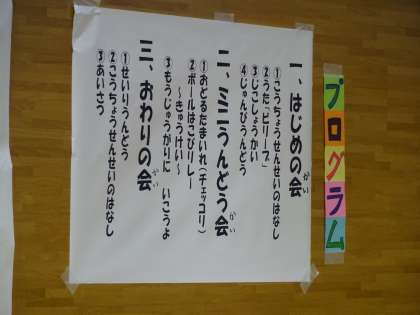 プログラム
一、はじめの会
かい
①こうちょうせんせいのはなし
②うた「ビリーブ」
③じこしょうかい
④じゅんびうんどう
二、ミニうんどう会
かい
①おどるたまいれ(チェッコリ)
②ボールはこびリレー
～きゅうけい～
③もうじゅうがりに いこうよ
三、おわりの会
かい
①せいりうんどう
②こうちょうせんせいのはなし
③あいさつ